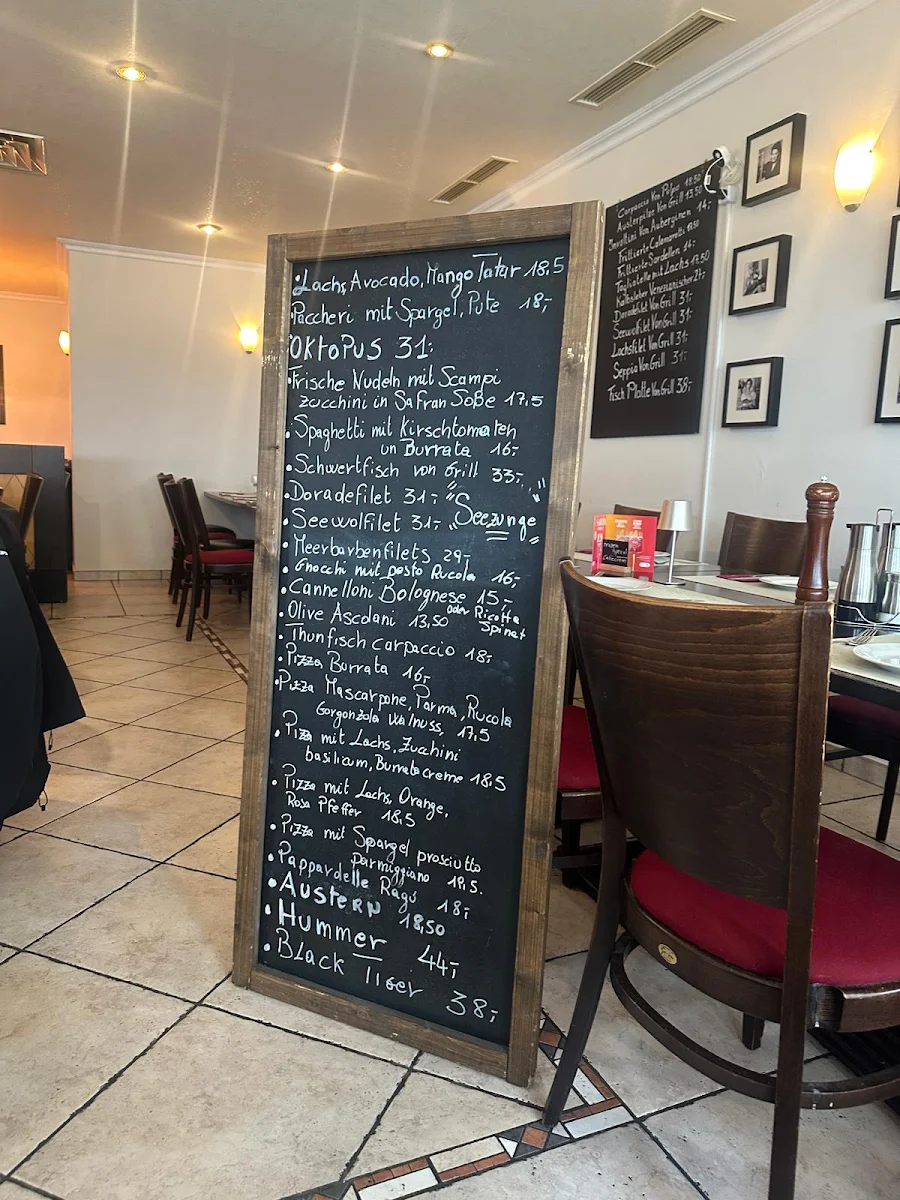 • Lachs, Avocado, Mango Tatar 18.5
• Paccheri mit Spargel, Pute 18,-
• OKTOPUS 31.-
• Frische Nudeln mit Scampi
zucchini in Safran Soße 17.5
• Spaghetti mit Kirschtomaten
un Burrata 16,-
• Schwertfisch von Grill 33,-
• Doradefilet 31,-
"Seezunge"
• Seewolfilet 31,-
• Meerbarbenfilets 29,-
• Gnocchi mit pesto Rucola 16,-
• Cannelloni Bolognese 15,-
oder Ricotta
Spinat
• Olive Ascolani 13,50
• Thunfisch carpaccio 18,-
• Pizza Burrata 16,-
• Pizza Mascarpone, Parma, Rucola
Gorgonzola Walnuss, 17,5
• Pizza mit Lachs, Zucchini
basilicum, Burrata creme 18,5
• Pizza mit Lachs, Orange,
Rosa Pfeffer 18,5
• Pizza mit Spargel prosciutto
Parmiggiano 18,5.
• Pappardelle Ragú 18,-
• Austern 18,50
• Hummer 44,-
• Black Tiger 38,-
Carpaccio Von Polpo 18.50
Austerpilze Von Grill 13.50
Involtini Von Auberginen 14,-
Frittierte Calamaretti
Frittierte Sardellen 14,-
Tagliatelle mit Lachs 17.50
Kalbsleber Venezianischer 27,-
Doradefilet Von Grill 31,-
Seewolfilet Von Grill 31,-
Lachsfilet Von Grill 31,-
Seppia Von Grill 31,-
Fisch Platte Von Grill 38,-